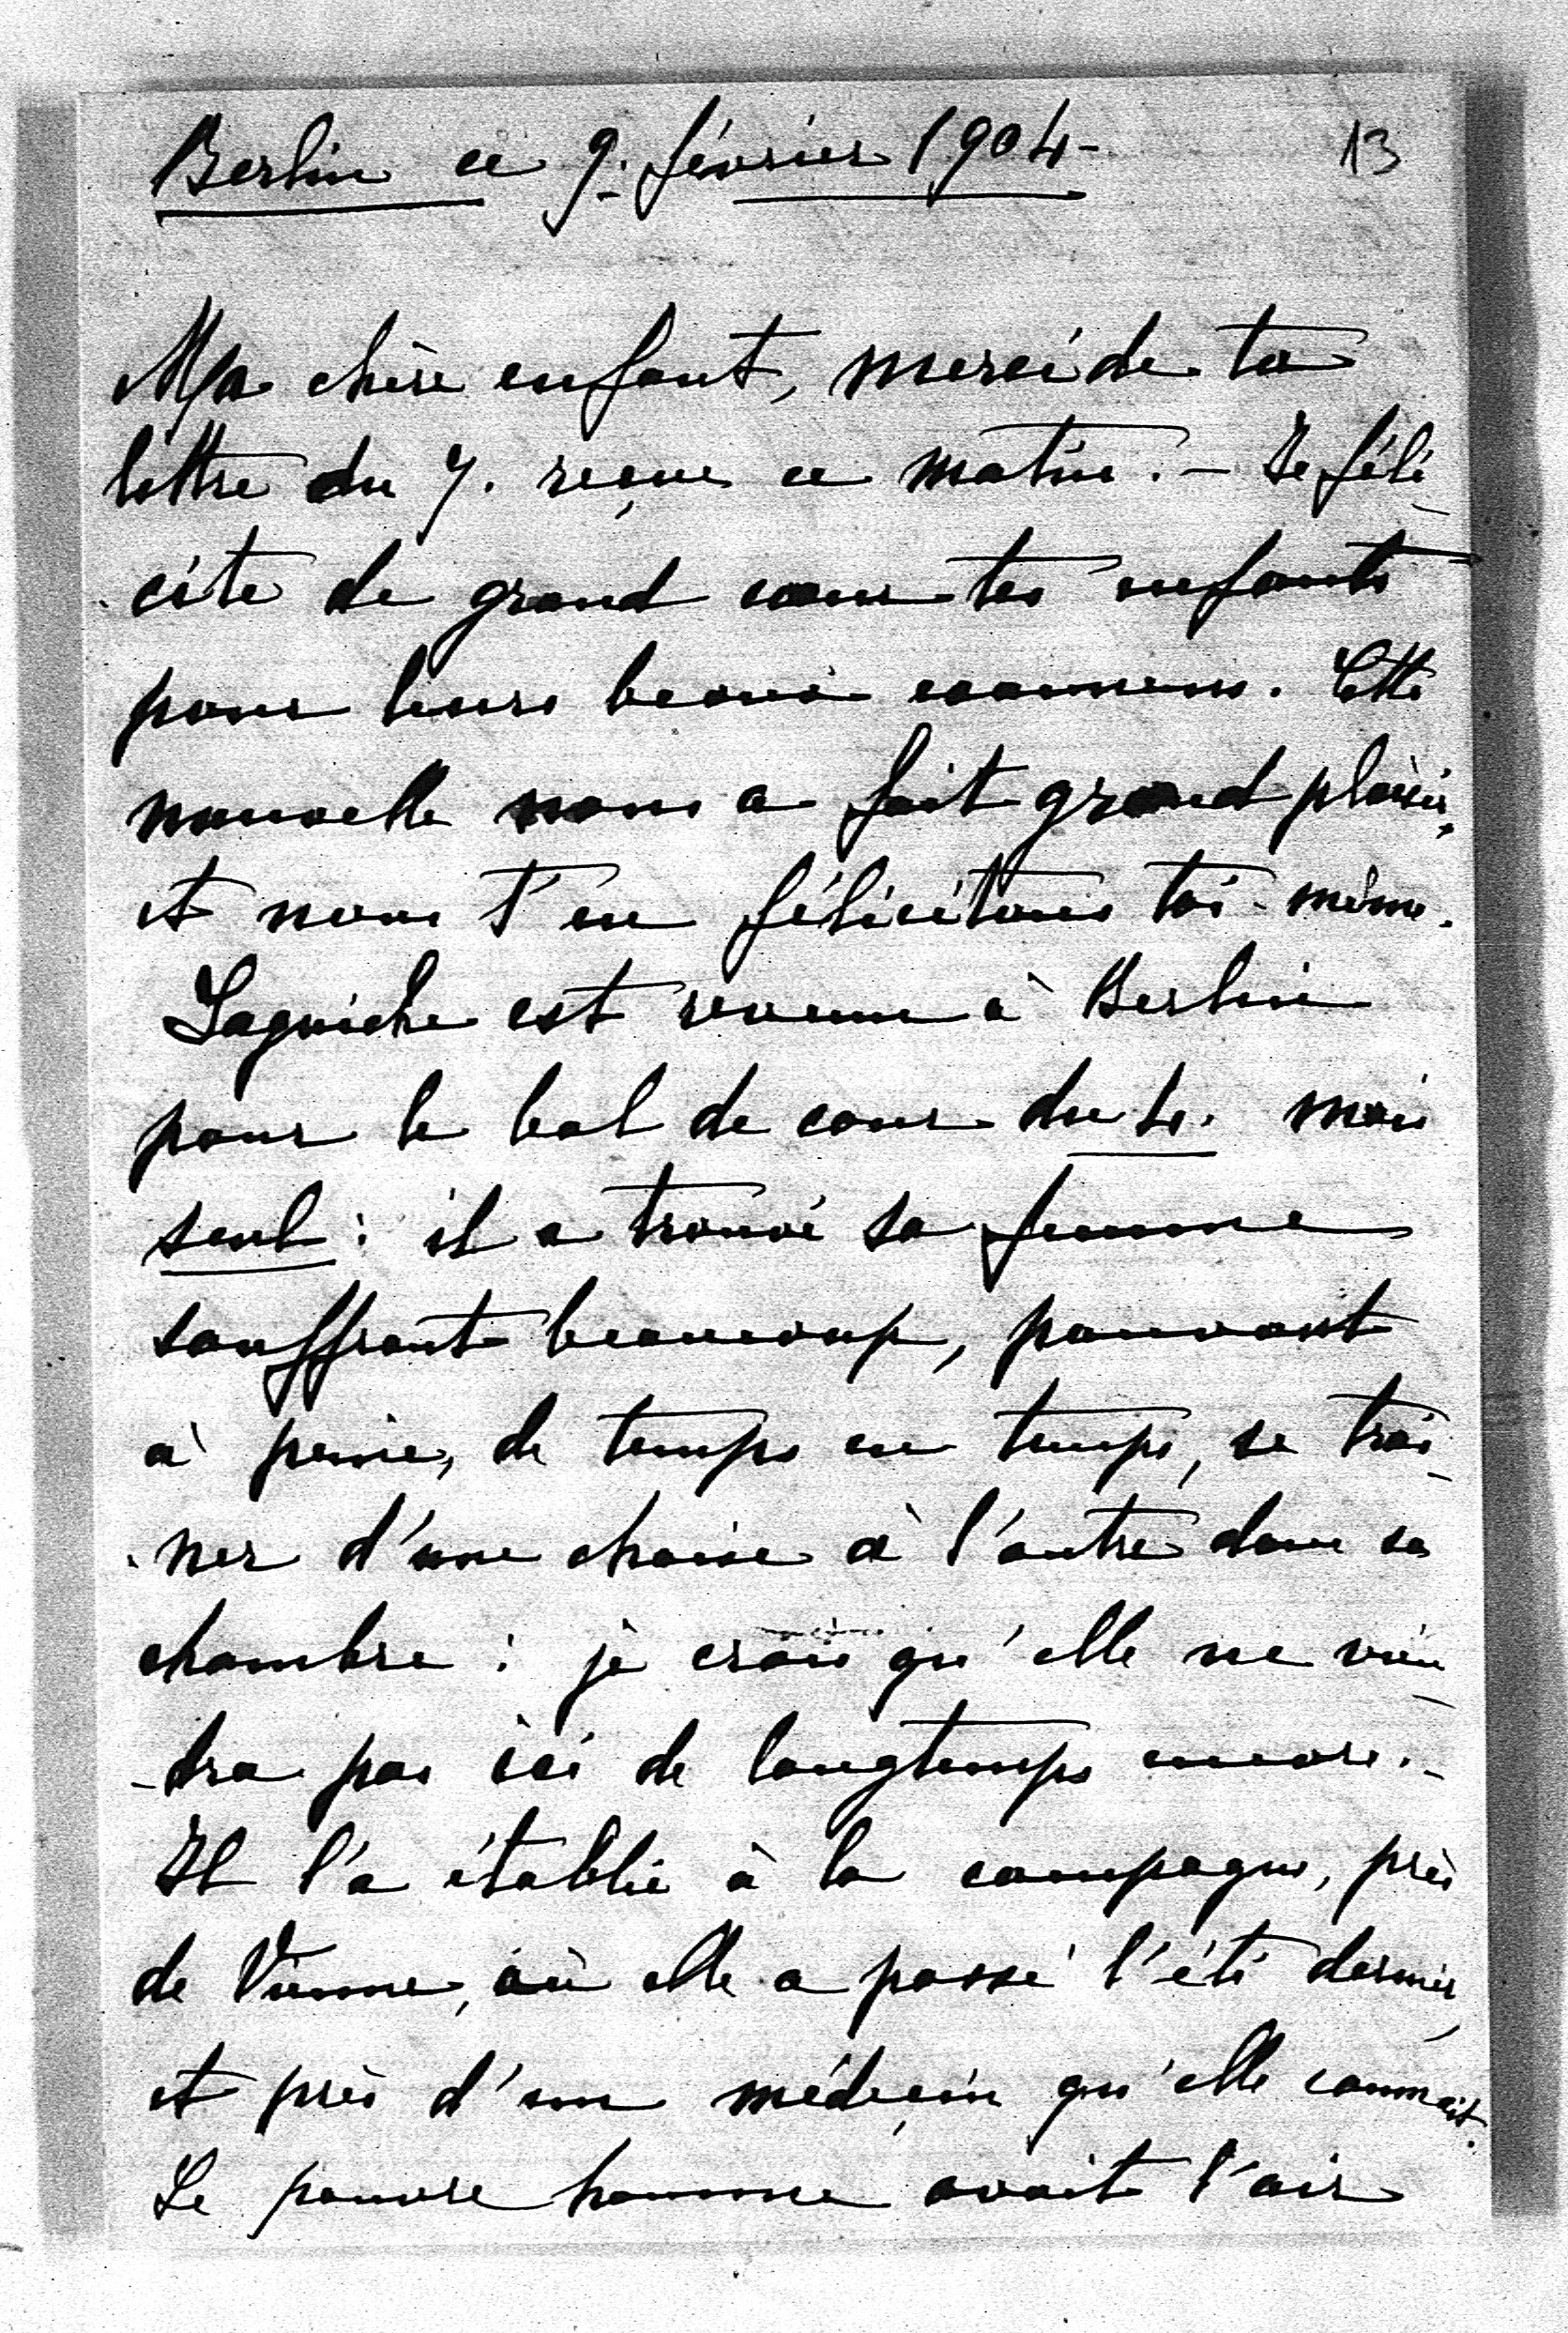 Berlin ce 9. février 1904-
13
Ma chère enfant, merci de ta
lettre du 7. reçue ce matin. - Je féli-
cite de grand cœur tes enfants
pour leurs beaux examens. Cette
nouvelle nous a fait grand plaisir,
et nous t'en félicitons toi-même.
Laguiche est revenu à Berlin
pour le bal de cour du 4. mais
seul : il a trouvé sa femme
souffrant beaucoup, pouvant
à peine, de temps en temps, se traî-
ner d'une chaise à l'autre dans sa
chambre : je crois qu'elle ne vien-
-dra pas ici de longtemps encore. -
Il l'a établie à la campagne, près
de Vienne, où elle a passé l'été dernier,
et près d'un médecin qu'elle connait.
Le pauvre homme avait l'air